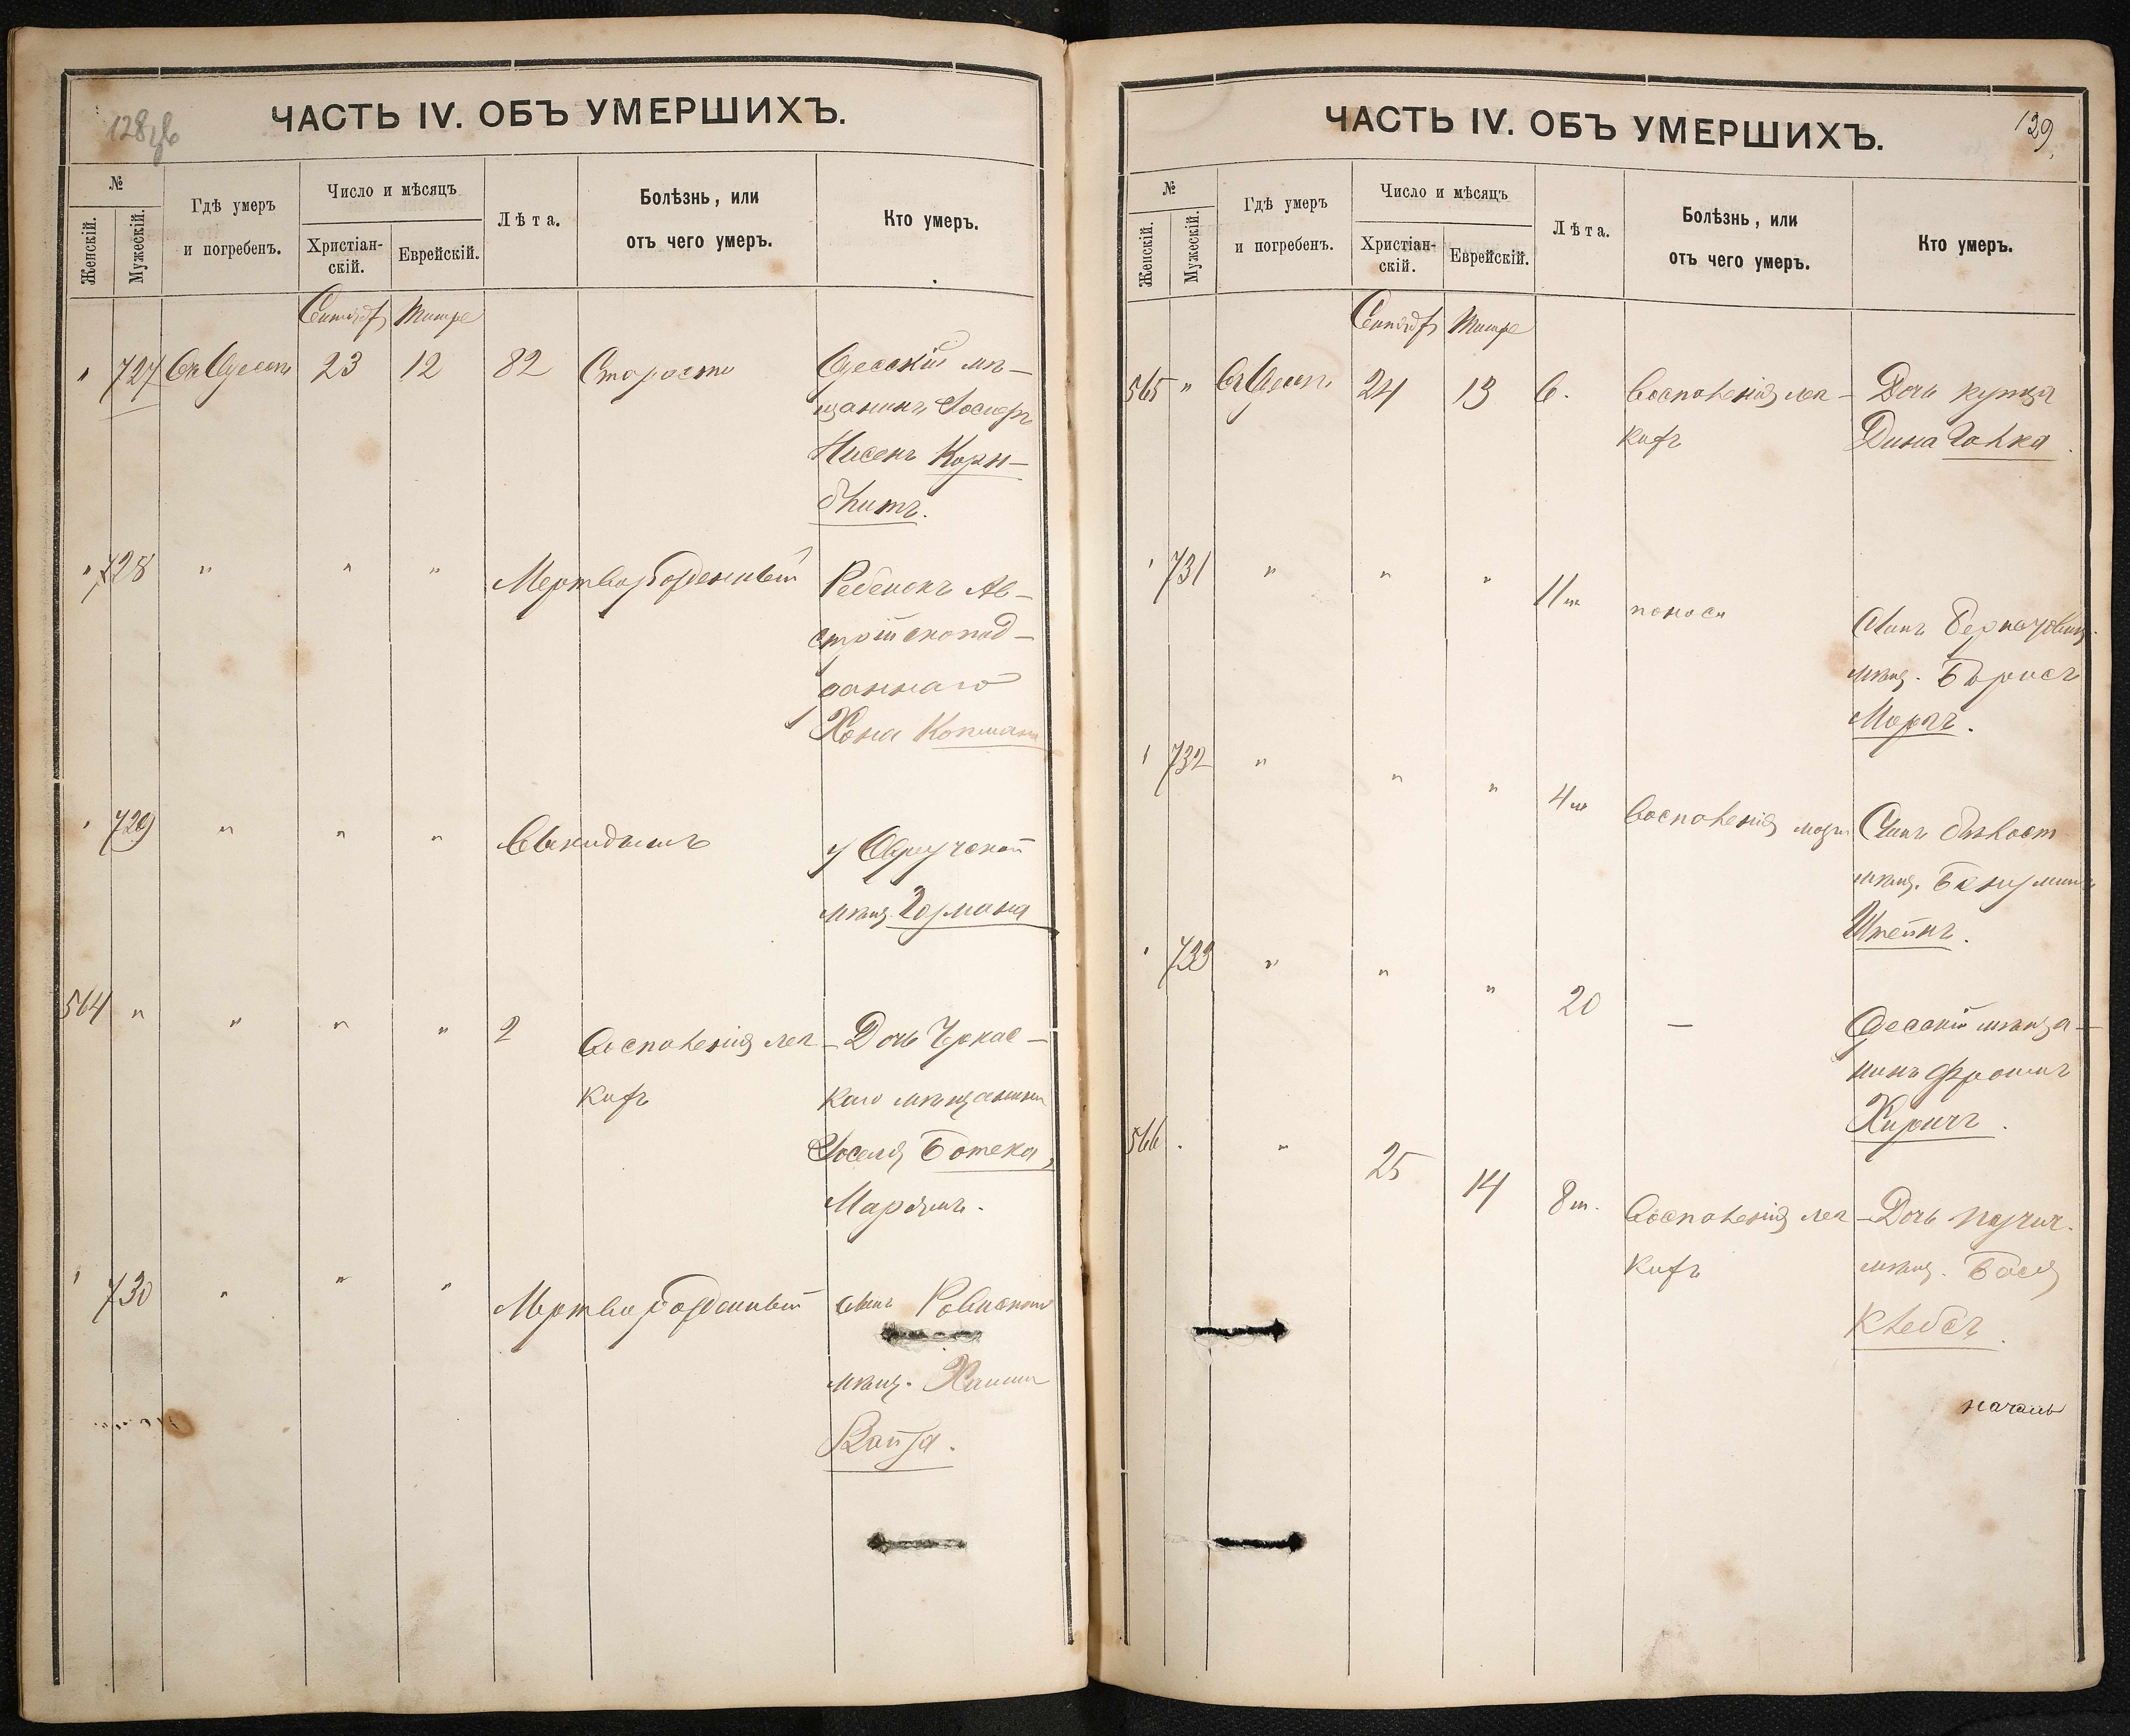 128 об
ЧАСТЬ IV. ОБЪ УМЕРШИХЪ.
№
Женскій.
Мужескій.
Гдѣ умеръ
и погребенъ.
Число и мѣсяцъ
Христіан-
скій.
Еврейскій.
Лѣта.
Болѣзнь, или
отъ чего умеръ.
Кто умеръ.
Сентябр Тишре
" 727 Въ Одессѣ 23 12 82 Старости Одесскій мѣ-
щанинъ Іосифъ
Нисенъ Корн-
блитъ.
" 728 " " " Мертворожденный Ребенокъ Ав-
стрійскопод-
даннаго
Хона
" 729 " " " Выкидышъ у Овручской
мѣщ. Гормана
564 " " " " 2 Воспаленія лег- Дочь Черкас-
кихъ каго мѣщанина
Іоселя Ботека,
" 730 " " " Мертворожденный сынъ Ровнскаго
мѣщ. Хаима
129
ЧАСТЬ IV. ОБЪ УМЕРШИХЪ.
№
Женскій.
Мужескій.
Гдѣ умеръ
и погребенъ.
Число и мѣсяцъ
Христіан-
скій.
Еврейскій.
Лѣта.
Болѣзнь, или
отъ чего умеръ.
Кто умеръ.
Сентябр Тишре
565 " Въ Одессѣ 24 13 6. Воспаленія лег- Дочь купца
кихъ Дина Голка.
" 731 " " " 11 м поноса Сынъ
мѣщ. Борисъ
" 732 " " " 4 м Воспаленія мозга Сынъ
мѣщ. Беньуминъ
Штейнъ.
" 733 " " " 20 — Одесскій мѣща-
нинъ Фроимъ
566 . " 25 14 8 м. Воспаленія лег- Дочь
кихъ мѣщ. Бася
Клебсъ.